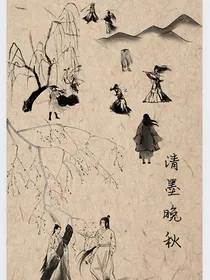 清墨晚秋